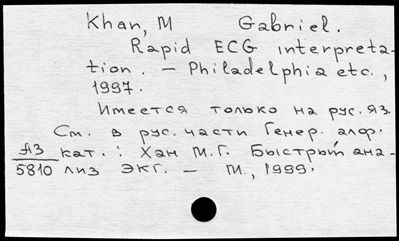 Khan, M Gabriel.
Rapid ECG interpreta-
tion. - Philadelphia etc.,
1997.
Имеется только на рус. яз.
См. в рус. части Генер. алф.
кат.: Хан М.Г. Быстрый ана-
лиз ЭКГ. - М., 1999.
ЯЗ
5810